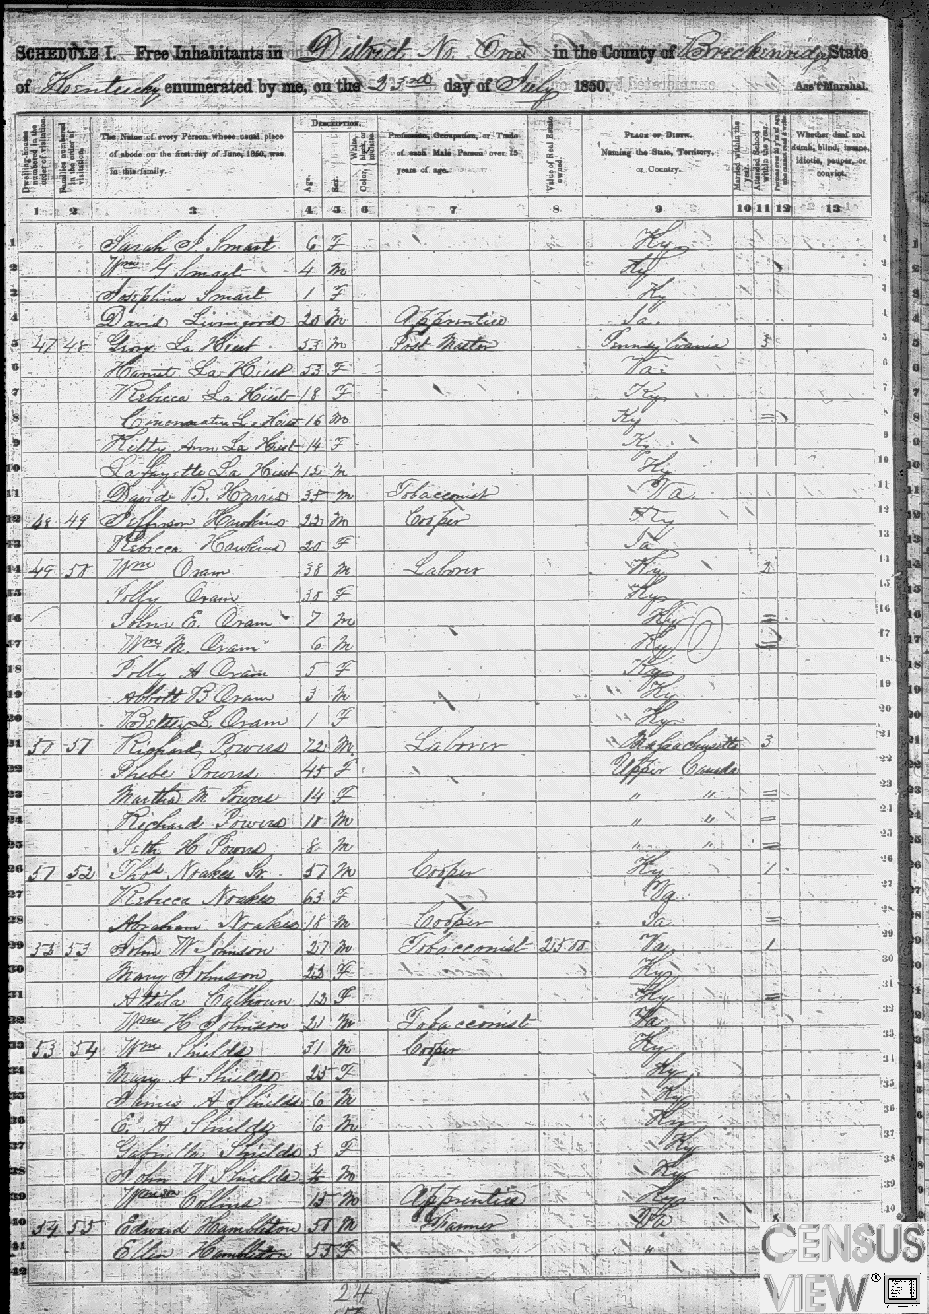 SCHEDULE I. Free Inhabitants in District No. One in the County of Breckenridge State
of Kentucky enumerated by me, on the 23rd day of July 1850. Ass't Marshal.
Dwelling-houses numbered in the order of visitation.
Families numbered in the order of visitation.
The Name of every Person whose usual place of abode on the first day of June, 1850, was in this family.
DESCRIPTION.
Age.
Sex.
Color,
Profession, Occupation, or Trade of each Male Person over 15 years of age.
Value of Real Estate owned.
PLACE OF BIRTH. Naming the State, Territory, or Country.
Married within the year.
Attended School within the year.
Whether deaf and dumb, blind, insane, idiotic, pauper, or convict.
1 2 3 4 5 6 7 8 9 10 11 12 13
1 Sarah J Smart 6 F Ky
2 Wm G Smart 4 m Ky
3 Josephine Smart 1 F Ky
4 David Livingood 20 m Apprentice
5 47 48 La Hiest 53 m Post Master Pennsylvania
6 La Hiest 53 F Va
7 Rebecca La Hiest 18 F Ky
8 La Hiest 16 m Ky
9 Kitty Ann La Hiest 14 F Ky
10 La Fayette La Hiest 12 m Ky
11 David B. Harris 38 m Tobacconist Va
12 48 49 Jefferson Hawkins 22 m Cooper Ky
13 Rebecca Hawkins 20 F
14 49 50 Wm Oram 38 m Laborer Ky 2
15 Polly Oram 35 F Ky
16 John E. Oram 7 m Ky
17 Wm M. Oram 6 m Ky
18 Polly A Oram 5 F Ky
19 Abbott B Oram 3 m Ky
20 L. Oram 1 F Ky
21 50 51 Richard Powers 72 m Laborer Massachusetts 3
22 Phebe Powers 45 F Upper Canada
23 Martha M Powers 14 F " "
24 Richard Powers 10 m " "
25 Seth H Powers 8 m " "
26 51 52 Thos Noakes Sr. 57 m Cooper Ky 1
27 Rebecca Noakes 63 F Va
28 Abraham Noakes 18 m Cooper
29 52 53 John W Johnson 27 m Tobacconist 2500 Va 1
30 Mary Johnson 23 F Ky
31 Attila Calhoun 12 F Ky
32 Wm H Johnson 21 m Tobacconist Va
33 53 54 Wm Shields 31 m Cooper Ky
34 Mary A Shields 25 F Ky
35 James A Shields 6 m Ky
36 E A Shields 6 m Ky
37 Gabrella Shields 3 F Ky
38 John W Shields m Ky
39 Collins 15 m Apprentice Ky
40 54 55 Edward Hambleton 50 m Farmer
41 Ellen Hambleton 53 F "
42
24
CENSUS
VIEW®